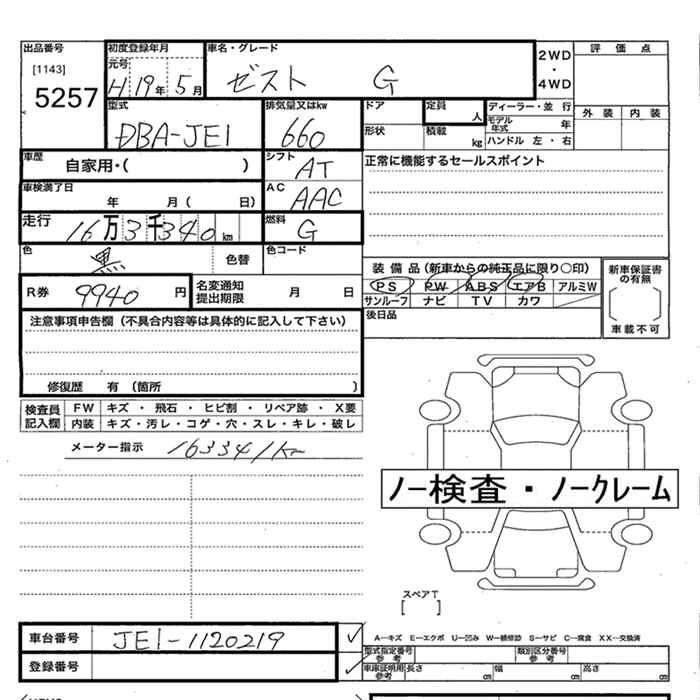 出品番号 初度登録年月 車名・グレード 2WD・4WD 評価点
[1143] 元号
5257 H19年5月 ゼスト G
型式 排気量又はkw ドア 定員 人 ディーラー・並行 外装 内装
DBA-JE1 660 形状 積載 kg モデル年式 年
ハンドル 左・右
車歴 自家用・( ) シフト AT 正常に機能するセールスポイント
車検満了日 年 月( 日) AC AAC
走行 16万3千340km 燃料 G
色 黒 色替 色コード
装備品(新車からの純正品に限り○印) 新車保証書の有無
PS PW ABS エアB アルミW
R券 9940円 名変通知提出期限 月 日 サンルーフ ナビ TV カワ
後日品 車載不可
注意事項申告欄(不具合内容等は具体的に記入して下さい)
修復歴 有(箇所 )
検査員記入欄 FW キズ・飛石・ヒビ割・リペア跡・X要
内装 キズ・汚レ・コゲ・穴・スレ・キレ・破レ
メーター指示 163341km
ノー検査・ノークレーム
スペアT
[ ]
車台番号 JE1-1120219 ✓
A…キズ E…エクボ U…凹み W…補修跡 S…サビ C…腐食 XX…交換済
登録番号 ✓
型式指定番号 参考 類別区分番号 参考
車庫証明用 参考 長さ cm 幅 cm 高さ cm